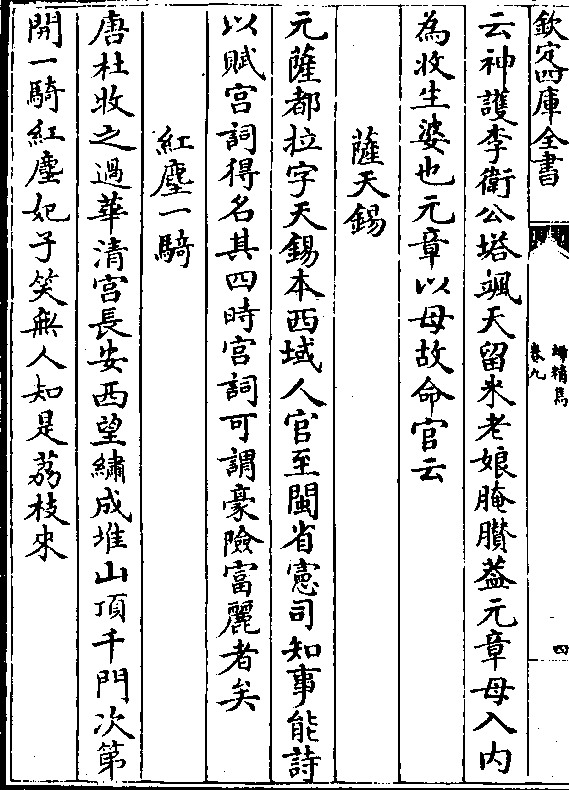 欽定四庫全書
歸精爲
卷九
四
云神護李衛公塔颯天留米老娘腌臢葢元章母入内
為收生婆也元章以母故命官云
薩天錫
元薩都拉字天錫本西域人官至閩省憲司知事能詩
以賦宫詞得名其四時宫詞可謂豪險富麗者矣
紅塵一騎
唐杜牧之過華清宫長安西望繡成堆山頂千門次第
開一騎紅塵妃子笑無人知是荔枝來